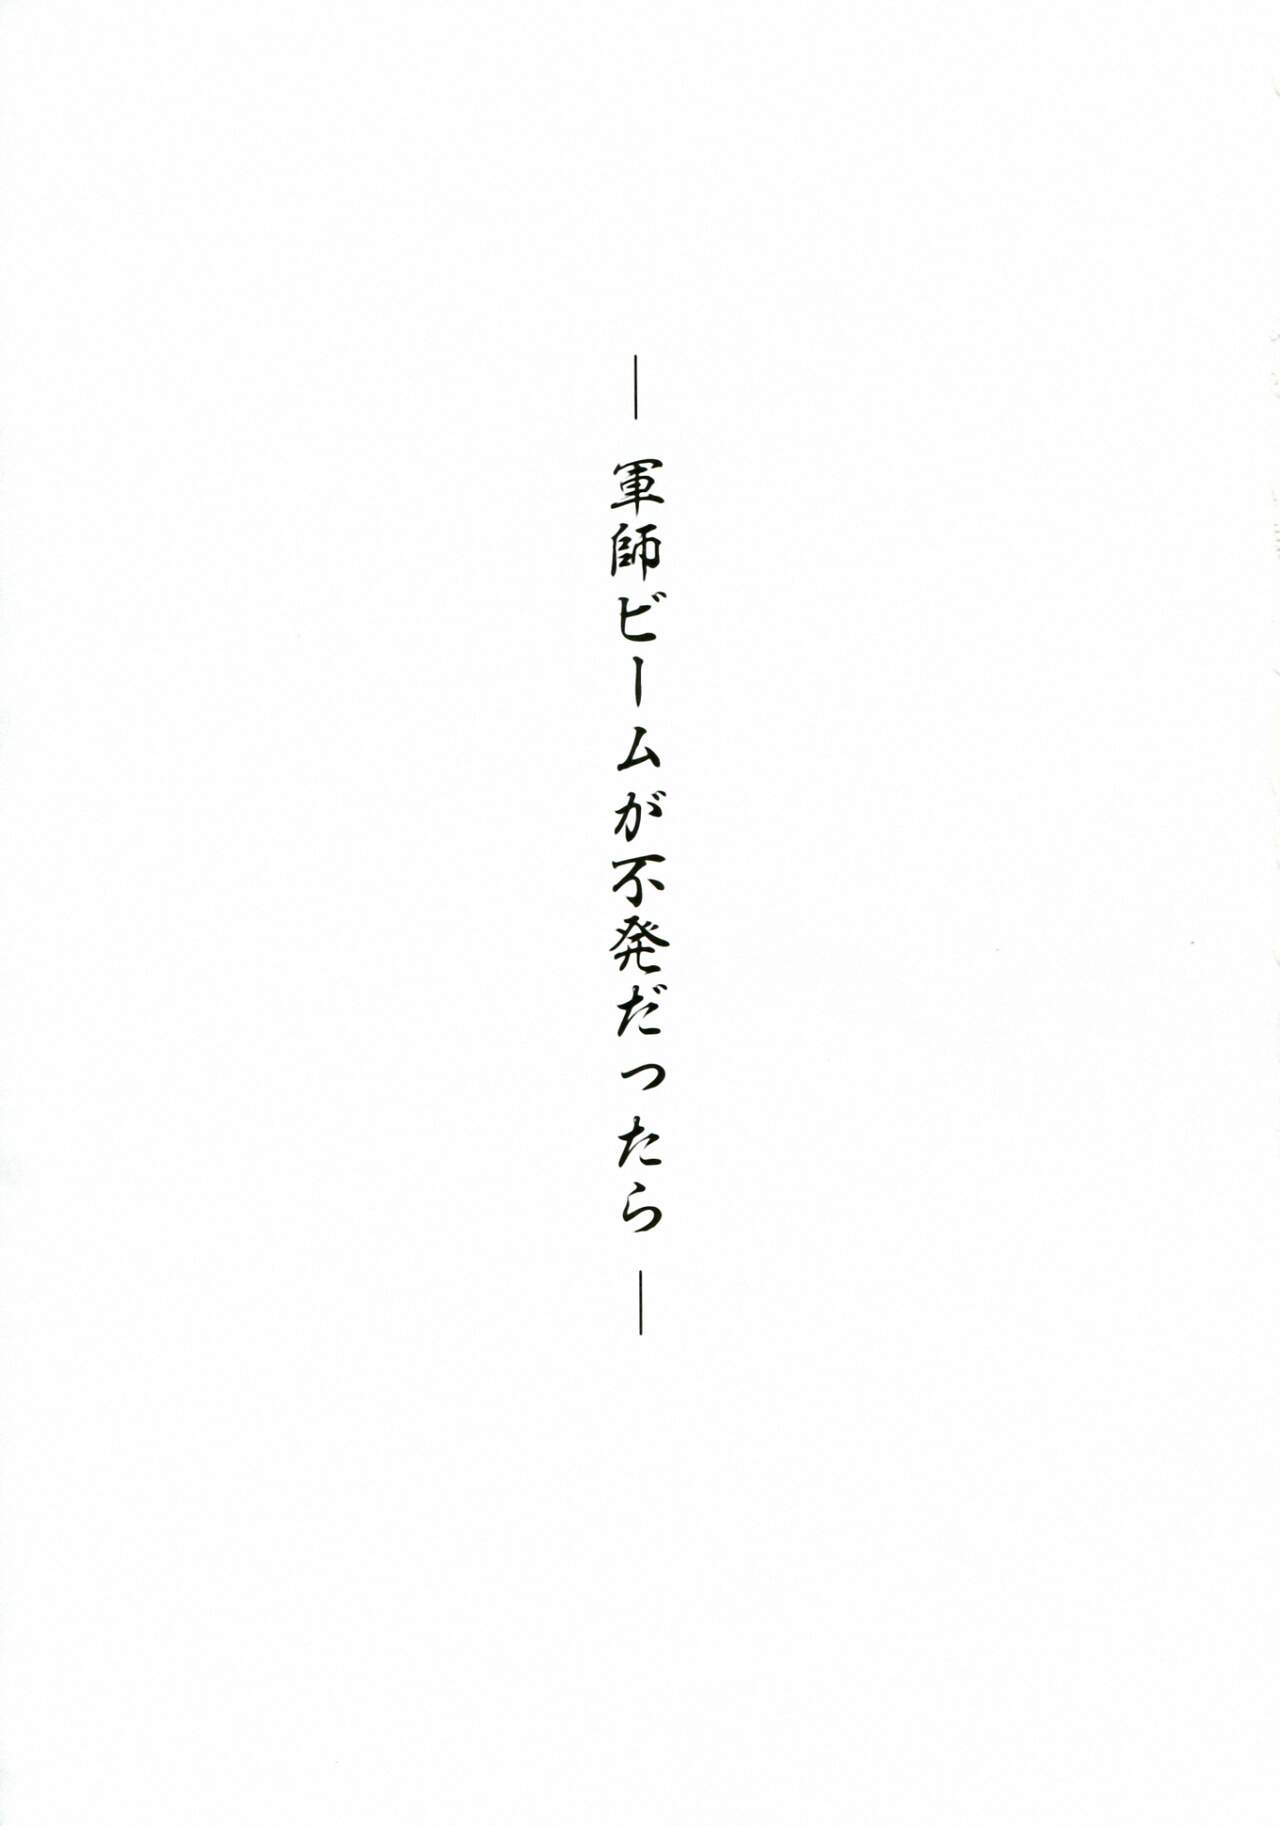 ― 軍師ビームが不発だったら ―